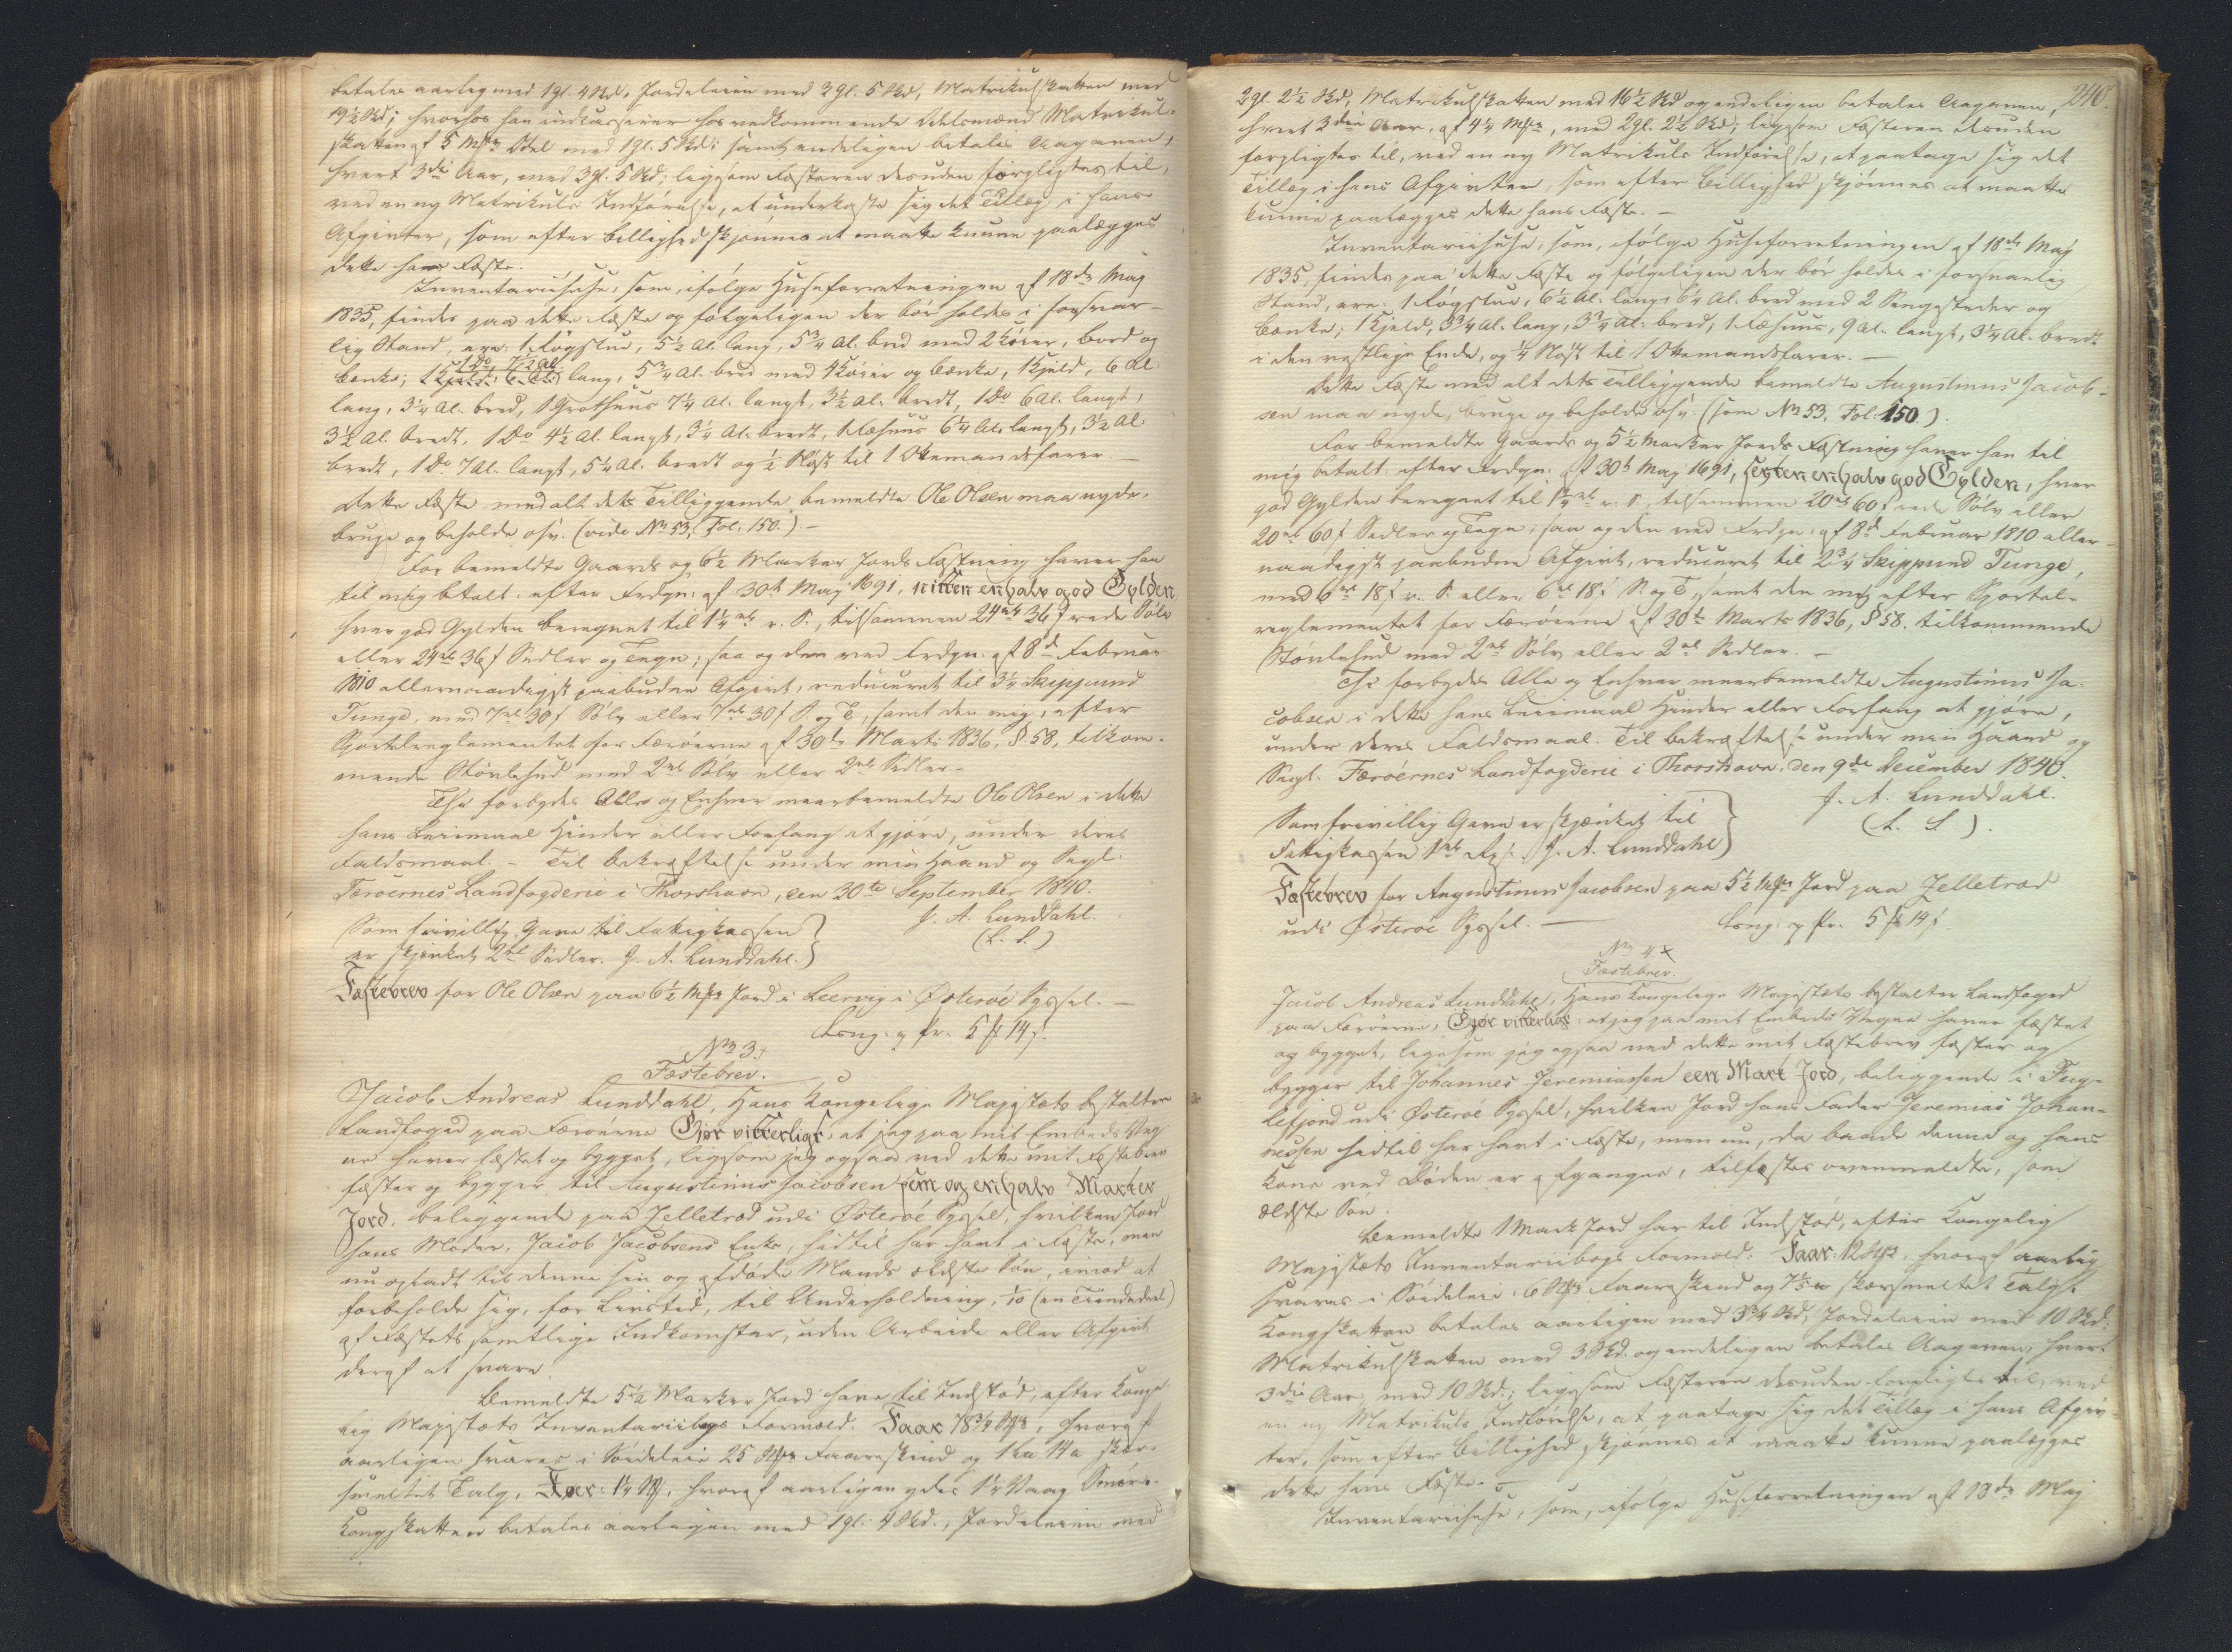 betales aarlig med 1gl. 4Skd. Jordeleien med 3gl. 5 Skd, Matrikulskatten med
19½Skd; hvorhos han indcasserer hos vedkommende Odelsmænd Matrikul-
skatten af 5 Mkr Odel med 1gl. 5 Skd; samt endeligen betales Aagaven,
hvert 3die Aar, med 3gl. 5 Skd; ligesom Fæsteren desuden forpligtes til,
ved en ny Matrikuls Indførelse, at underkaste sig det Tillæg i hans
Afgivter, som efter Billighed skjønnes at maatte kunne paalægges
dette hans Fæste.
Inventariihuse, som, ifølge Huseforretningen af 18de Maj
1835, findes paa dette Fæste og følgeligen der bør holdes i forsvar-
lig Stand, ere: 1 Røgstue, 5½ Al. lang, 5¾ Al. bred med 2 Køier, Bord og
Bænke; 1 Do 7½ Al. lang, 5¾ Al. bred med 4 Køier og Bænke, 1 Kjeld, 6 Al.
lang, 3¼ Al. bred, 1 Grothuus 7¼ Al. langt, 3½ Al. bredt, 1 Do 6 Al. langt,
3½ Al. bredt, 1 Do 4½ Al. langt, 3¼ Al. bredt, 1 Fæhuus 6¼ Al. langt, 3½ Al.
bredt, 1 Do 7 Al. langt, 5¼ Al. bredt og ½ Nøst til 1 Ottemandsfarer. —
Dette Fæste med alt dets Tilliggende bemeldte Ole Olsen maa nyde,
bruge og beholde osv. (vide No 53, Fol. 150.). —
For bemeldte Gaards og 6½ Marker Jords Fæstning haver han
til mig betalt: efter Frdgn: af 30te Maj 1691, nitten en halv god Gylden
hver god Gylden beregnet til 1¼ rbd r. S., tilsammen 24rbd 36s rede Sølv
eller 24rbd 36s Sedler og Tegn; saa og den ved Frdgn: af 8de Februar
1810 allernaadigst paabudne Afgivt, reduceret til 3¼ Skippund
Tunge, med 7rbd 30s Sølv eller 7rbd 30s S. og T., samt den mig, efter
Sportelreglementet for Færøerne af 30te Marts 1836, §.58, tilkom-
mende Støvlehud med 2rbd Sølv eller 2rbd Sedler. -
Thi forbydes Alle og Enhver meerbemeldte Ole Olsen i dette
hans Leiemaal Hinder eller Forfang at gjøre, under deres
Faldsmaal. - Til bekræftelse under min Haand og Segl.
Færøernes Landfogderie i Thorshavn, den 30te September 1840.
J. A. Lunddahl.
(L. S.)
Som frivillig Gave til Fattigkassen
er skjænket 2rbd Sedler. J. A. Lunddahl.
Fæstebrev for Ole Olsen paa 6½ Mkr Jord i Leervig i Østerøe Syssel. —
No 3.
Fæstebrev.
Jacob Andreas Lunddahl, Hans Kongelige Majestæts bestalter
Landfoged paa Færøerne Gjør vitterligt, at jeg paa mit Embeds Veg-
ne haver fæstet og bygget, ligesom jeg ogsaa ved dette mit Fæstebrev
fæster og bygger til Augustinus Jacobsen fem og en halv Marker
Jord, beliggende paa Zelletræd udi Østerøe Syssel, hvilken Jord
hans Moder, Jacob Jacobsens Enke, hidtil har havt i Fæste, men
nu opladt til denne sin og afdøde Mands ældste Søn, imod at
forbeholde sig, for Livstid, til Underholdning, 1/10 (en Tiendedeel)
af Fæstets samtlige Indkomster, uden Arbeide eller Afgivt
deraf at svare.
Bemeldte 5½ Marker Jord have til Indstød, efter Konge-
lig Majestæts Inventarii Formæld. Faar 78¾ , hvoraf
aarligen svares i Søideleie 25 Faareskind og skær-
smeltet Talg. Køer: 1¼ , hvoraf aarligen ydes 1¼ Vaag Smør.
Kongskatten betales aarligen med 1gl: 4Skd., Jordeleien med
240.
2gl. 2½ Skd, Matrikulskatten med 16½ Skd og endeligen betales Aagaven,
hvert 3die Aar, af 4¼ Mkr, med 2gl. 2½ Skd; ligesom Fæsteren desuden
forpligtes til, ved en ny Matrikuls Indførelse, at paatage sig det
Tillæg i hans Afgivter, som efter Billighed skjønnes at maatte
kunne paalægges dette hans Fæste. —
Inventariihuse, som, ifølge Huseforretningen af 18de Maj
1835, findes paa dette Fæste og følgeligen der bør holdes i forsvarlig
Stand, ere: 1 Røgstue, 6½ Al. lang, 6¼ Al. bred med 2 Sengesteder og
Bænke; 1 Kjeld, 3¾ Al. lang, 3¾ Al. bred, 1 Fæhuus, 9 Al. langt, 3¼ Al. bredt
i den vestlige Ende, og ¼ Nøst til 1 Ottemandsfarer. —
Dette Fæste med alt dets Tilliggende bemeldte Augustinus Jacob-
sen maa nyde, bruge og beholde osv. (som No 53, Fol. 150.).
For bemeldte Gaards og 5½ Marker Jords Fæstning haver han til
mig betalt: efter Frdgn: af 30te Maj 1691, sexten en halv god Gylden, hver
god Gylden beregnet til 1¼ rbd r. S., tilsammen 20rbd 60s rede Sølv eller
20rbd 60s Sedler og Tegn; saa og den ved Frdgn: af 8de Februar 1810 aller-
naadigst paabudne Afgivt, reduceret til 2¾ Skippund Tunge,
med 6rbd 18s r. S. eller 6rbd 18s S. og T., samt den mig efter Sportel-
reglementet for Færøerne af 30te Marts 1836, §58, tilkommende
Støvlehud med 2rbd Sølv eller 2rbd Sedler. —
Thi forbydes Alle og Enhver meerbemeldte Augustinus Ja-
cobsen i dette hans Leiemaal Hinder eller Forfang at gjøre,
under deres Faldsmaal. Til bekræftelse under min Haand og
Segl. Færøernes Landfogderie i Thorshavn, den 9de December 1840.
J. A. Lunddahl.
(L. S.).
Som frivillig Gave er skjænket til
Fattigkassen 1rbd J. A. Lunddahl
Fæstebrev for Augustinus Jacobsen paa 5½ Mkr Jord paa Zelletræd
udi Østerøe Syssel. —
No 4.
Fæstebrev.
Jacob Andreas Lunddahl, Hans Kongelige Majestæts bestalter Landfoged
paa Færøerne, Gjør vitterligt: at jeg paa mit Embeds Vegne haver fæstet
og bygget, ligesom jeg ogsaa ved dette mit Fæstebrev fæster og
bygger til Johannes Jeremiassen een Mark Jord, beliggende i Fug-
lefjord udi Østerøe Syssel, hvilken Jord hans Fader Jeremias Johan-
nessen hidtil har havt i Fæste, men nu, da baade denne og hans
Kone ved Døden er afgangne, tilfæstes ovenmeldte, som
ældste Søn.
Bemeldte 1 Mark Jord har til Indstød, efter Kongelig
Majestæts Inventariibogs Formæld: Faar: 12 , hvoraf aarlig
svares i Søideleie: 6 Faareskind og skærsmeltet Talg.
Kongskatten betales aarligen med 3¾ Skd, Jordeleien med 10 Skd.
Matrikulskatten med 3 Skd. og endeligen betales Aagaven, hver
3die Aar, med 10 Skd.; ligesom Fæsteren desuden forpligtes til, ved
en ny Matrikuls Indførelse, at paatage sig det Tillæg i hans Afgiv-
ter, som efter Billighed skjønnes at maatte kunne paalægges
dette hans Fæste. —
Inventariihuse, som, ifølge Huseforretningen af 18de Maj